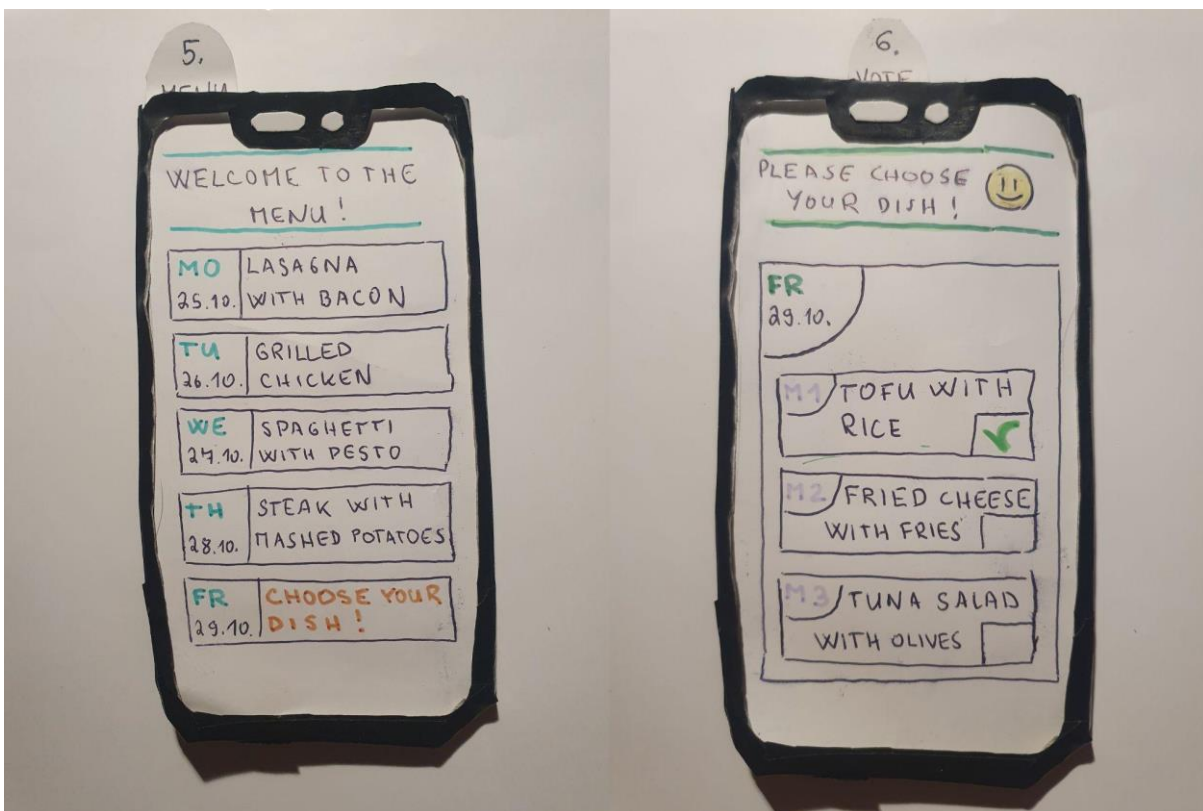 5.
MENU
WELCOME TO THE
MENU!
MO
25.10.
LASAGNA
WITH BACON
TU
26.10.
GRILLED
CHICKEN
WE
27.10.
SPAGHETTI
WITH PESTO
TH
28.10.
STEAK WITH
MASHED POTATOES
FR
29.10.
CHOOSE YOUR
DISH!
6.
VOTE
PLEASE CHOOSE
YOUR DISH!
FR
29.10.
M1
TOFU WITH
RICE
M2
FRIED CHEESE
WITH FRIES
M3
TUNA SALAD
WITH OLIVES